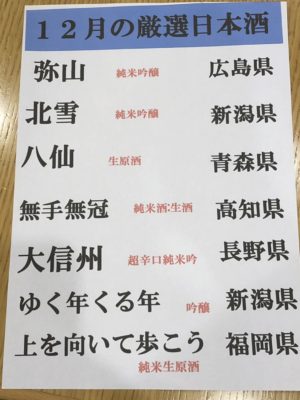 12月の厳選日本酒
弥山 純米吟醸 広島県
北雪 純米吟醸 新潟県
八仙 生原酒 青森県
無手無冠 純米酒:生酒 高知県
大信州 超辛口純米吟 長野県
ゆく年くる年 吟醸 新潟県
上を向いて歩こう 福岡県
純米生原酒